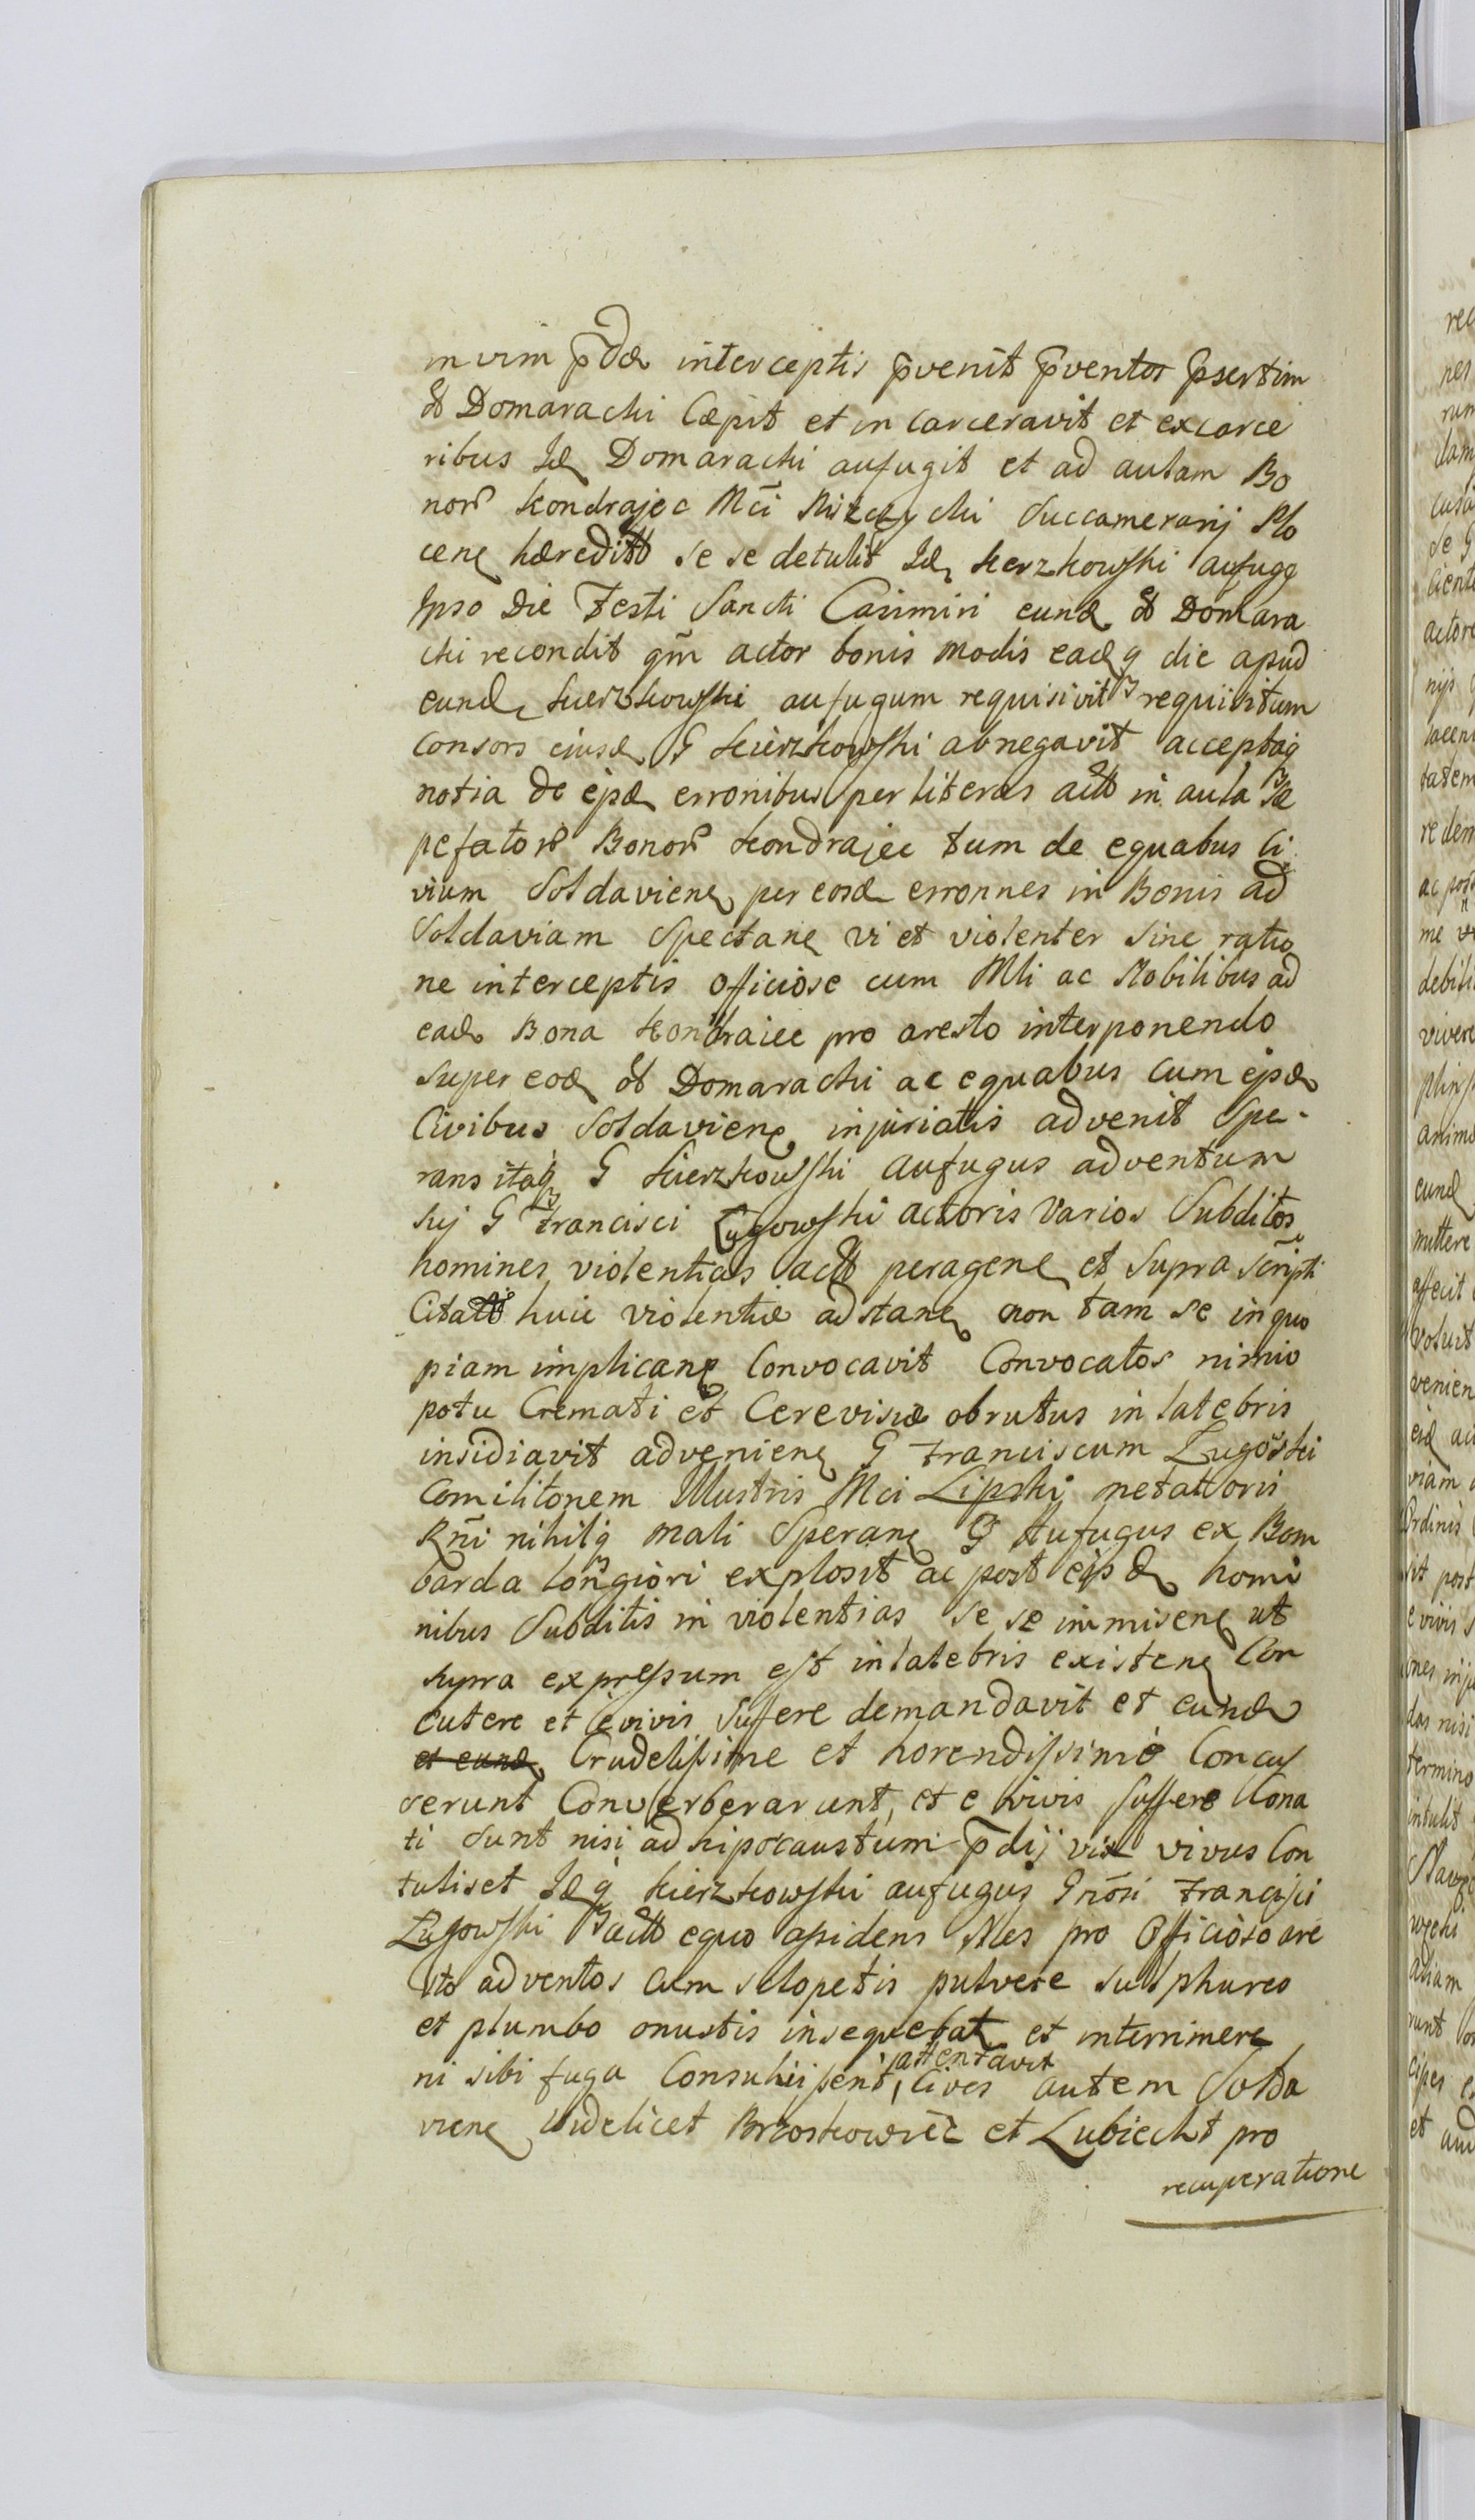 in vim p̄dæ interceptis p̄venit p̄ventos p̄sertim
et Domarachi Cæpit et in carceravit et ex carce
ribus Idæ Domarachi aufugit et ad aulam Bo
nor̄ Kondrajec Mci Succamerarij Plo
cene hæredit se se detulit Idæ Kierzkowski aufug
Ipso Die Festi Sancti Casimiri eund et Domara
chi recondit qm̄ actor bonis modis eadq die apud
eund Kierzkowski aufugum requisivit requisitum
Consors eiusd G Kierzkowski abnegavit acceptaq
notia de ejsd erronibus per literas actt in aula Sæ
pefator̄ Bonor̄ Kondrajec tum de equabus Ci
vium Soldaviene per eosd erronnes in Bonis ad
Soldaviam Spectane vi et violenter sine ratio
ne interceptis officiose cum Mli ac Nobilibus ad
ead Bona Kondraiec pro aresto interponendo
super eod et Domarachi ac equabus cum ejsd
Civibus Soldaviene injuriatis advenit Spe-
rans itaq G Kierzkowski aufugus adventum
suj G Francisci Lugowski actoris Varios Subditos
homines violentias actt peragene et Supra scripti
Citatt huic violentiæ adstane non tam se in quo
piam implicane Convocavit Convocatos nimio
potu Cremati et Cerevisiæ obrutus in latebris
insidiavit adveniene G Franciscum Lugoski
Comilitonem Illustris Mci Lipski metatoris
Rn̄i nihilq mali Sperane G Aufugus ex Bom
barda longiori explosit ac post ejsd homi
nibus Subditis in violentias se se immisene ut
supra expressum est in latebris existene Con
cutere et e vivis suffere demandavit et eund
et eund Crudelissime et horendissime Concus
serunt Converberarunt, et e vivis suffere Cona
ti sunt nisi ad hipocaustum p̄dij vix vivus Con
tuliset Idæq Kierzkowski aufugus Gn̄osi Francisci
Lugowski actt equo asidens Nles pro Officioso are
sto adventos cum sclopetis pulvere sulphureo
et plumbo onustis insequebat et interrimere
attentavit
ni sibi fuga Consuluissent, Cives autem Solda
viene videlicet Brzoskowic et Lubiecht pro
recuperatione